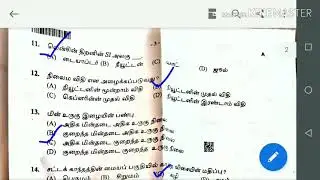 KINEMASTER
- 3 -
A
2
11. லென்சின் திறனின் SI அலகு
(A) டையாப்டர் (B) நியூட்டன் (C) (D) ஜூல்
12. நிலைம விதி என அழைக்கப்படுவது ?
(A) நியூட்டனின் மூன்றாம் விதி (B) நியூட்டனின் முதல் விதி
(C) கெப்ளரின் முதல் விதி (D) நியூட்டனின் இரண்டாம் விதி
13. மின் உருகு இழையின் பண்பு
(A) அதிக மின்தடை அதிக உருகு நிலை
(B) குறைந்த மின்தடை அதிக உருகு நிலை
(C) அதிக மின்தடை குறைந்த உருகு நிலை
(D) குறைந்த மின்தடை குறைந்த உருகு நிலை
14. சட்டக் காந்தத்தின் மையப் பகுதியில் விசையின் மதிப்பு ?
(A) பெருமம் (B) சிறுமம்